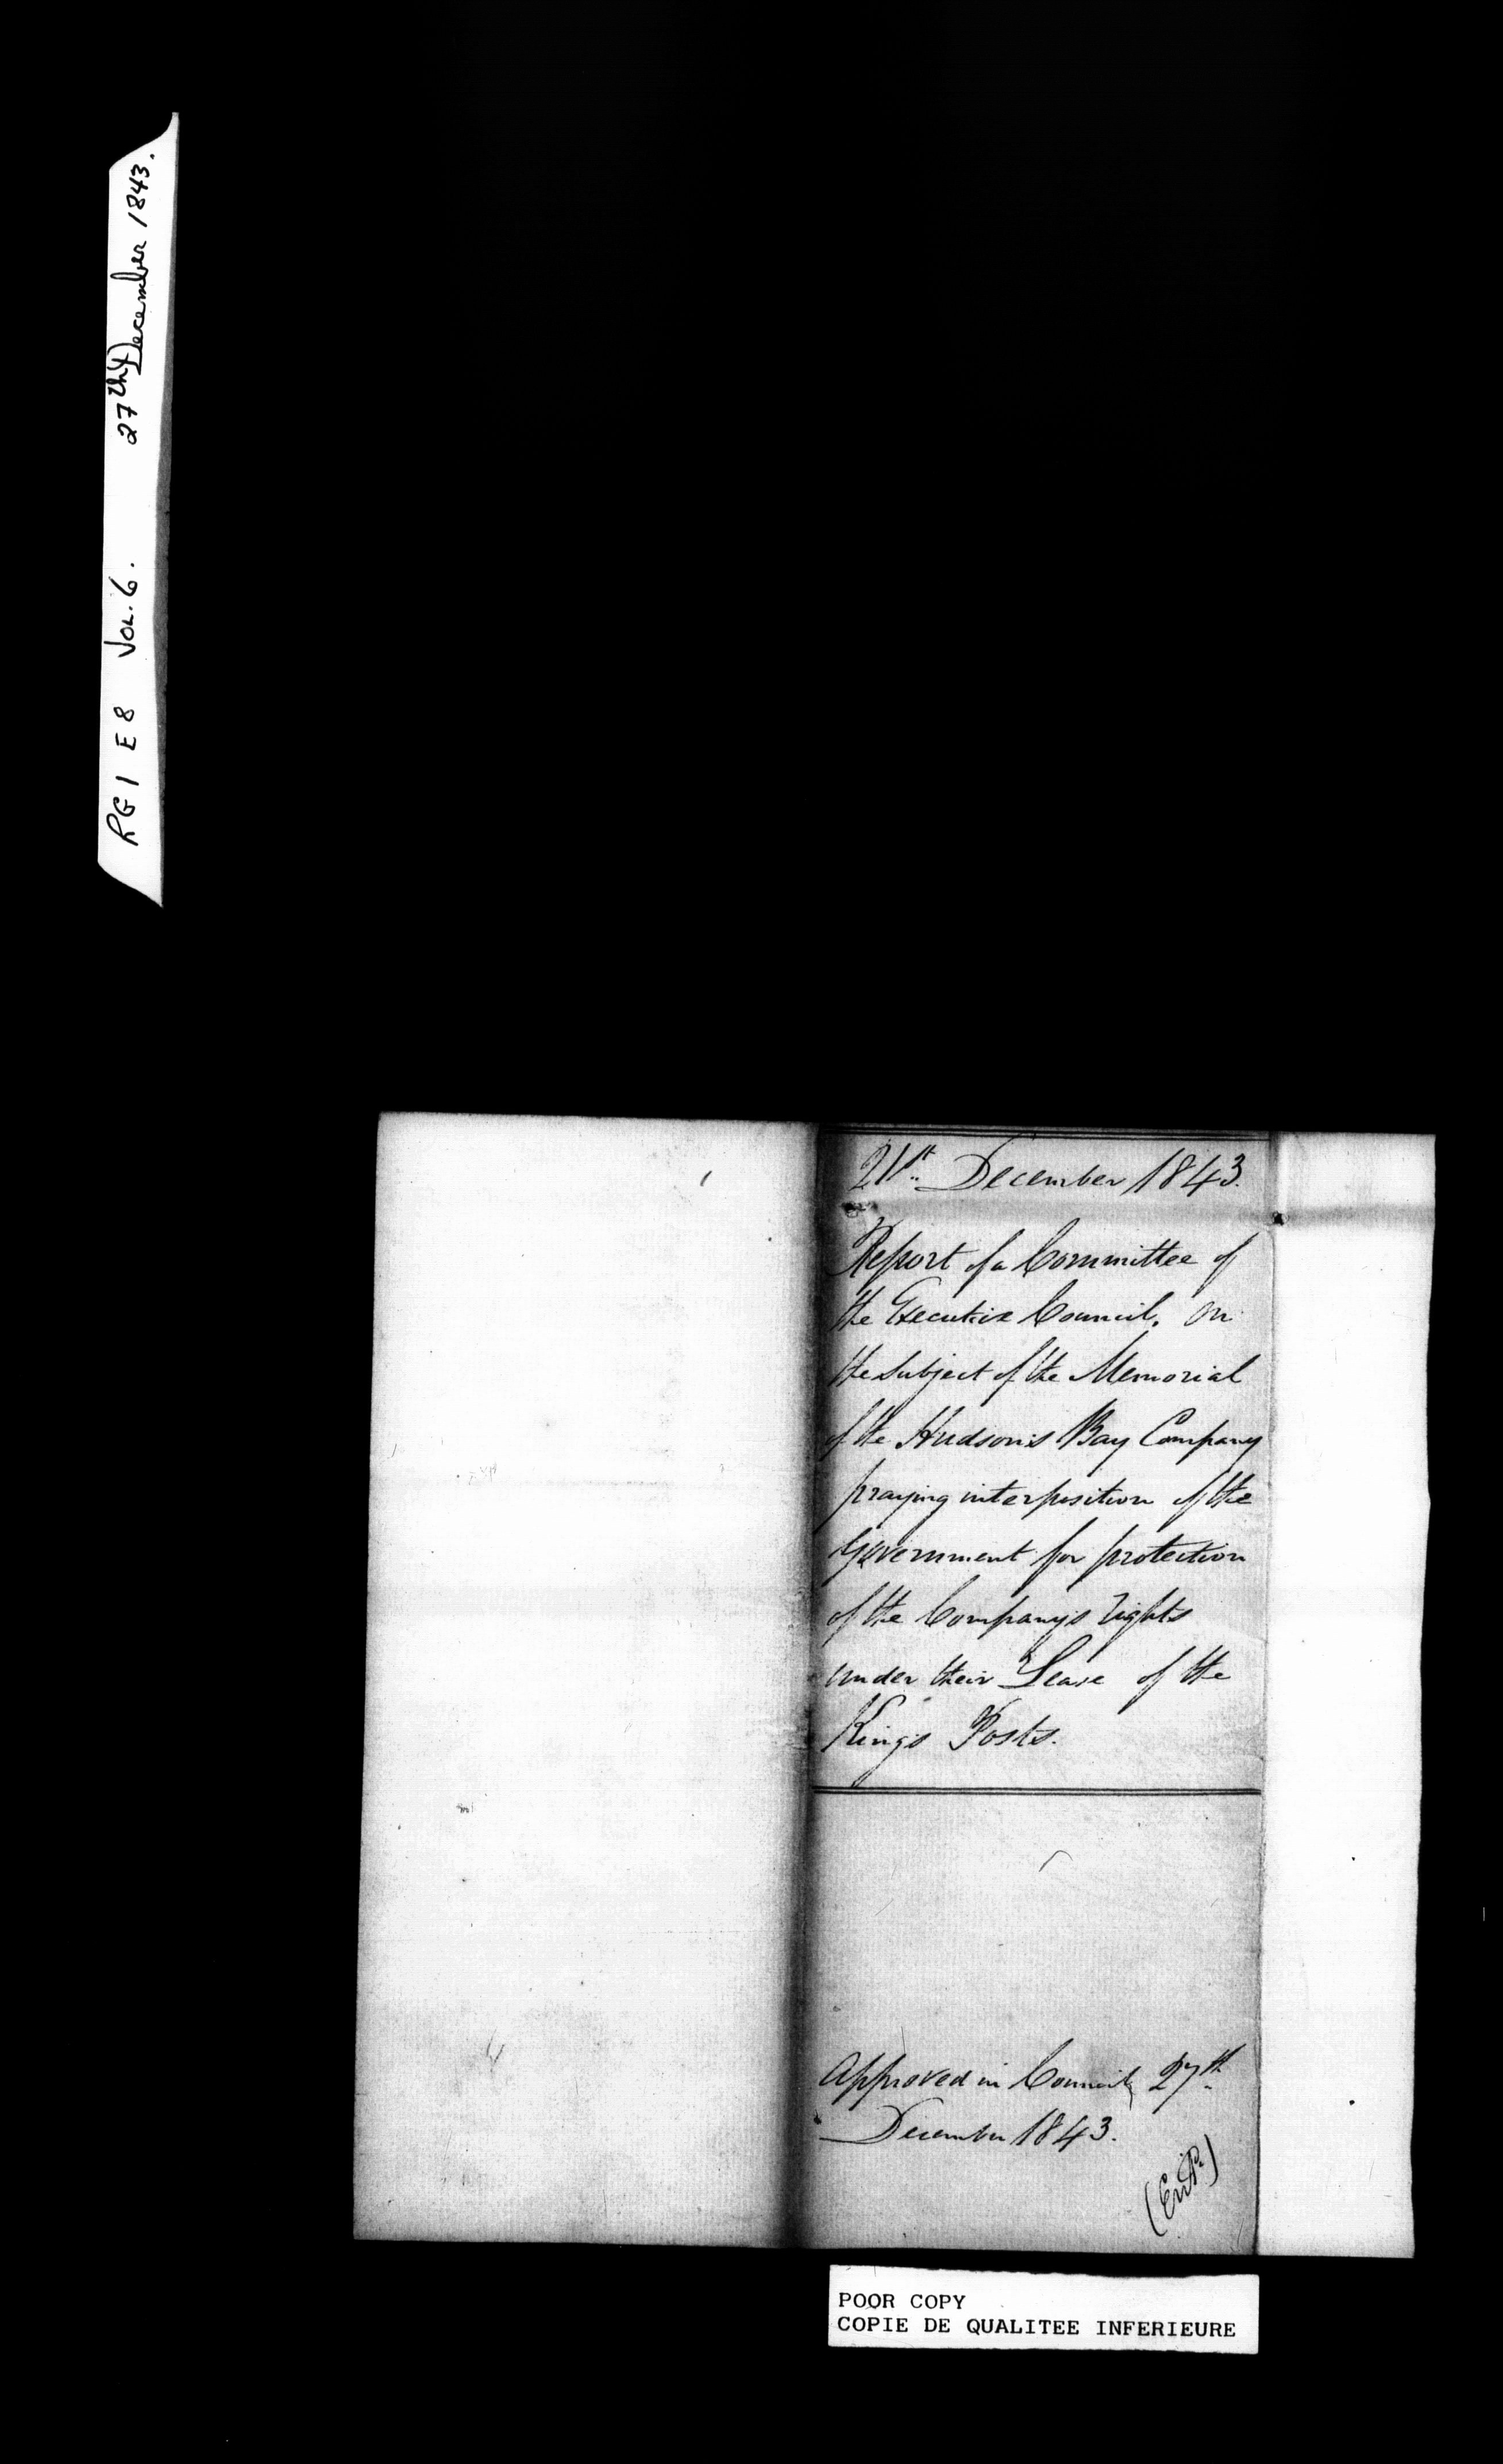 RG 1 E 8 Vol. 6. 27th December 1843.
21st December 1843.
Report of a Committee of
the Executive Council, on
the subject of the Memorial
of the Hudson's Bay Company
praying interposition of the
Government for protection
of the Company's rights
under their Lease of the
King's Posts.
Approved in Council, 27th
December 1843.
POOR COPY
COPIE DE QUALITEE INFERIEURE